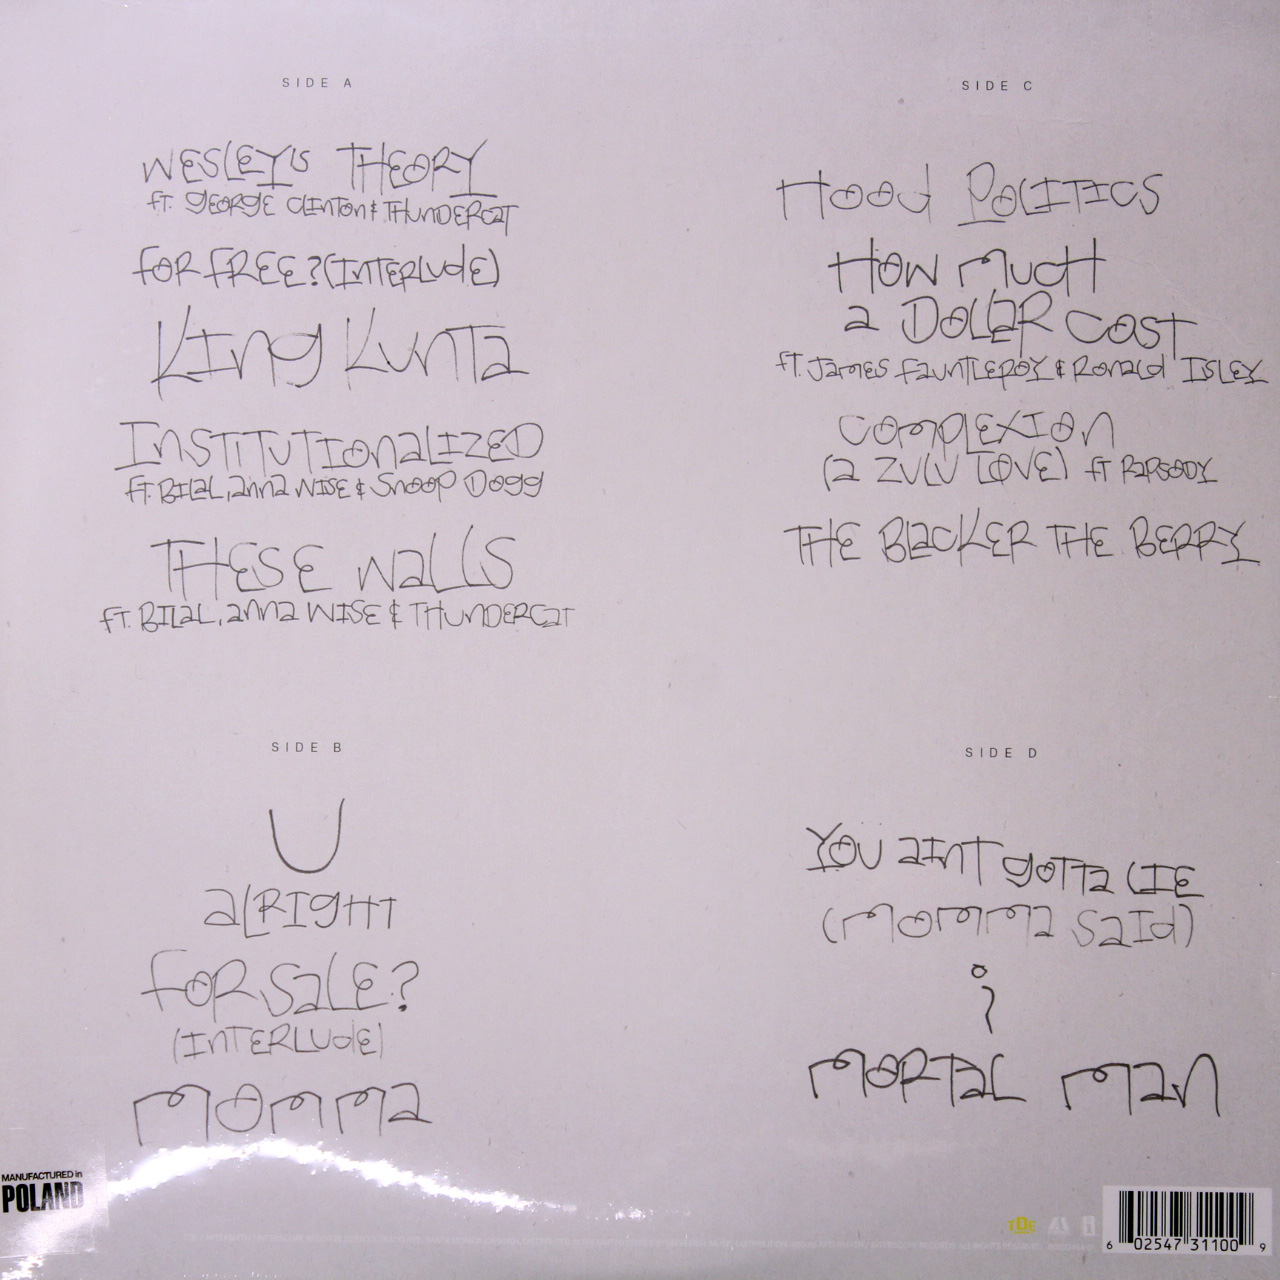 SIDE A
WESLEY'S THEORY
fT. GEORGE CLINTON & THUNDERCAT
FOR FREE? (INTERLUDE)
KING KUNTA
INSTITUTIONALIZED
fT. BILAL, anna WISE & SNOOP DOGG
THESE WALLS
fT. BILAL, anna WISE & THUNDERCAT
SIDE B
U
ALRIGHT
FOR SALE?
(INTERLUDE)
MOMMA
SIDE C
HOOD POLITICS
HOW MUCH
a DOLLAR COST
fT. JAMES FAUNTLEROY & RONALD ISLEY
COMPLEXION
(a ZULU LOVE) fT RAPSODY
THE BLACKER THE BERRY
SIDE D
YOU AINT GOTTA LIE
(MOMMA SAID)
i
MORTAL MAN
MANUFACTURED in
POLAND
TDE
6 02547 31100 9